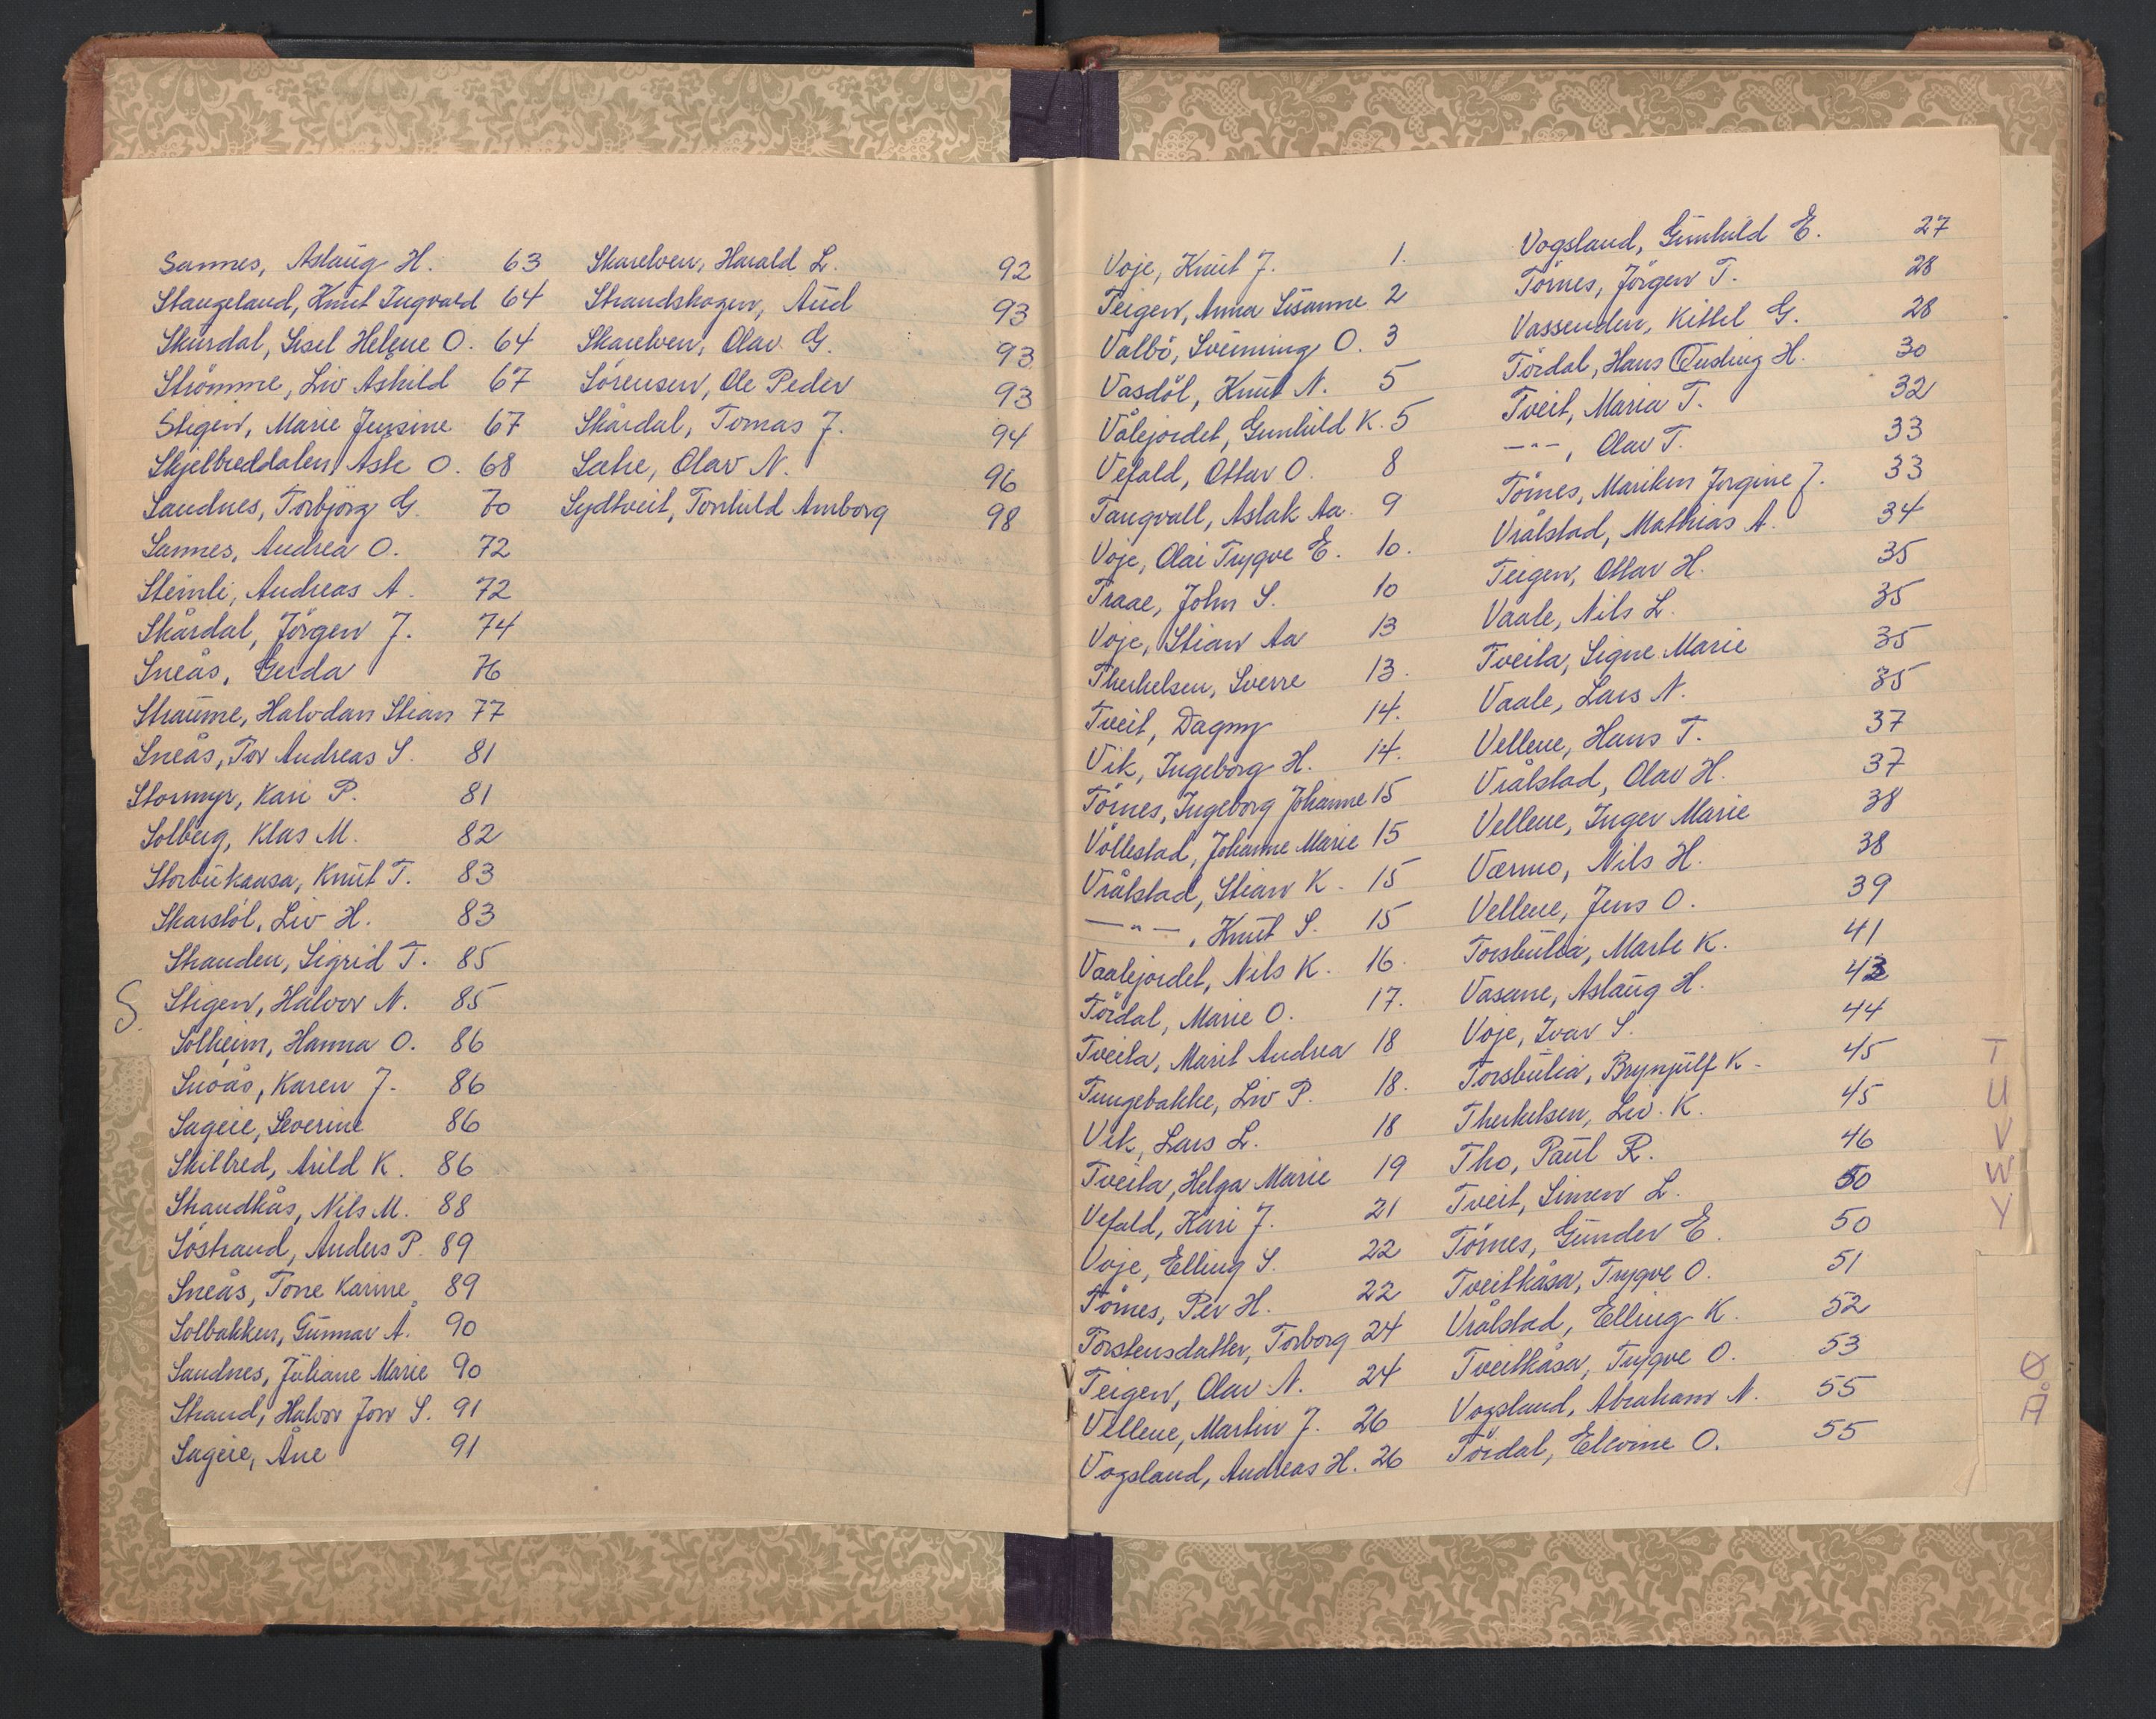 Sannes, Aslaug H. 63
Stangeland, Knut Ingvald 64
Skurdal, Sisel Helene O. 64
Strömme, Liv Ashild 67
Stigen, Marie Jensine 67
Skjelbreddalen, Asle O. 68
Sandnes, Torbjörg G. 70
Sannes, Andrea O. 72
Steinli, Andreas A. 72
Skårdal, Jörgen J. 74
Sneås, Gerda 76
Straume, Halvdan Stian 77
Sneås, Tor Andreas S. 81
Stormyr, Kari P. 81
Solberg, Klas M. 82
Storbukaasa, Knut T. 83
Skarstöl, Liv H. 83
Stranden, Sigrid T. 85
S. Stigen, Halvor N. 85
Solheim, Hanna O. 86
Snoås, Karen J. 86
Sageie, Severine 86
Skilbred, Arild K. 86
Strandkås, Nils M. 88
Söstrand, Anders P. 89
Sneås, Tone Karine 89
Solbakken, Gunnar Å. 90
Sandnes, Juliane Marie 90
Strand, Halvor Jon S. 91
Sageie, Åne 91
Skarelven, Harald L. 92
Strandskogen, Aud 93
Skarelven, Olav G. 93
Sörensen, Ole Peder 93
Skårdal, Tomas J. 94
Sætre, Olav N. 96
Sydtveit, Tonhild Amborg 98
Voje, Knut J. 1.
Teigen, Anna Susanne 2
Valbö, Sveinung O. 3
Vasdöl, Knut N. 5
Vålejordet, Gunhild K. 5
Vefald, Ottar O. 8
Tangvall, Aslak Aa. 9
Voje, Olai Trygve E. 10.
Traae, John S. 10
Voje, Stian Aa 13
Therkelsen, Sverre 13.
Tveit, Dagny 14.
Vik, Ingeborg H. 14.
Törnes, Ingeborg Johanne 15
Völlestad, Johanne Marie 15
Vrålstad, Stian K. 15
—"—, Knut S. 15
Vaalejordet, Nils K. 16.
Tördal, Marie O. 17.
Tveita, Marit Andrea 18
Tungebakke, Liv P. 18.
Vik, Lars L. 18
Tveita, Helga Marie 19
Vefald, Kari J. 21
Voje, Elling S. 22
Törnes, Per H. 22
Torstensdatter, Torborg 24
Teigen, Olav N. 24
Vellene, Martin J. 26
Vogsland, Andreas H. 26
Vogsland, Gunhild E. 27
Törnes, Jörgen T. 28
Vassenden, Kittel G. 28
Tördal, Hans H. 30
Tveit, Maria T. 32
—"—, Olav T. 33
Törnes, Mariken Jorgine J. 33
Vrålstad, Mathias A. 34
Teigen, Ottar H. 35
Vaale, Nils L. 35
Tveita, Signe Marie 35
Vaale, Lars N. 35
Vellene, Hans T. 37
Vrålstad, Olav H. 37
Vellene, Inger Marie 38
Værmo, Nils H. 38
Vellene, Jens O. 39
Torsbulia, Marte K. 41
Vasane, Aslaug H. 43
Voje, Ivar S. 44
Torsbulia, Brynjulf K. 45
Therkelsen, Liv. K. 45
Tho, Paul R. 46
Tveit, Simen L. 50
Törnes, Gunder E. 50
Tveitkåsa, Trygve O. 51
Vrålstad, Elling K. 52
Tveitkåsa, Trygve O. 53
Vogsland, Abraham N. 55
Tördal, Elevine O. 55
T
U
V
W
Y
Ø
Å